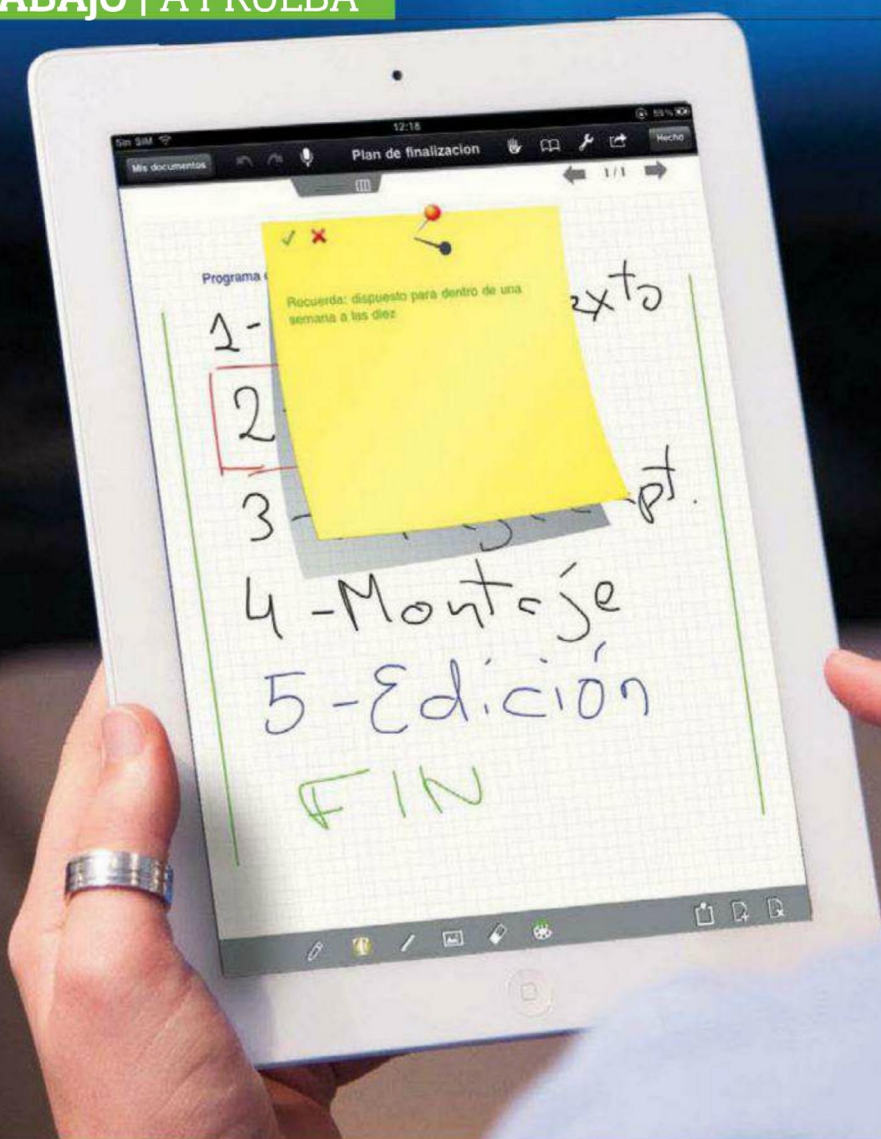 ABAJO | A PRUEBA
Sin SIM 12:18 55%
Mis documentos Plan de finalizacion Hecho
1/1
Programa
Recuerda: dispuesto para dentro de una
semana a las diez
1-
2
3- pt.
4-Montaje
5-Edición
FIN